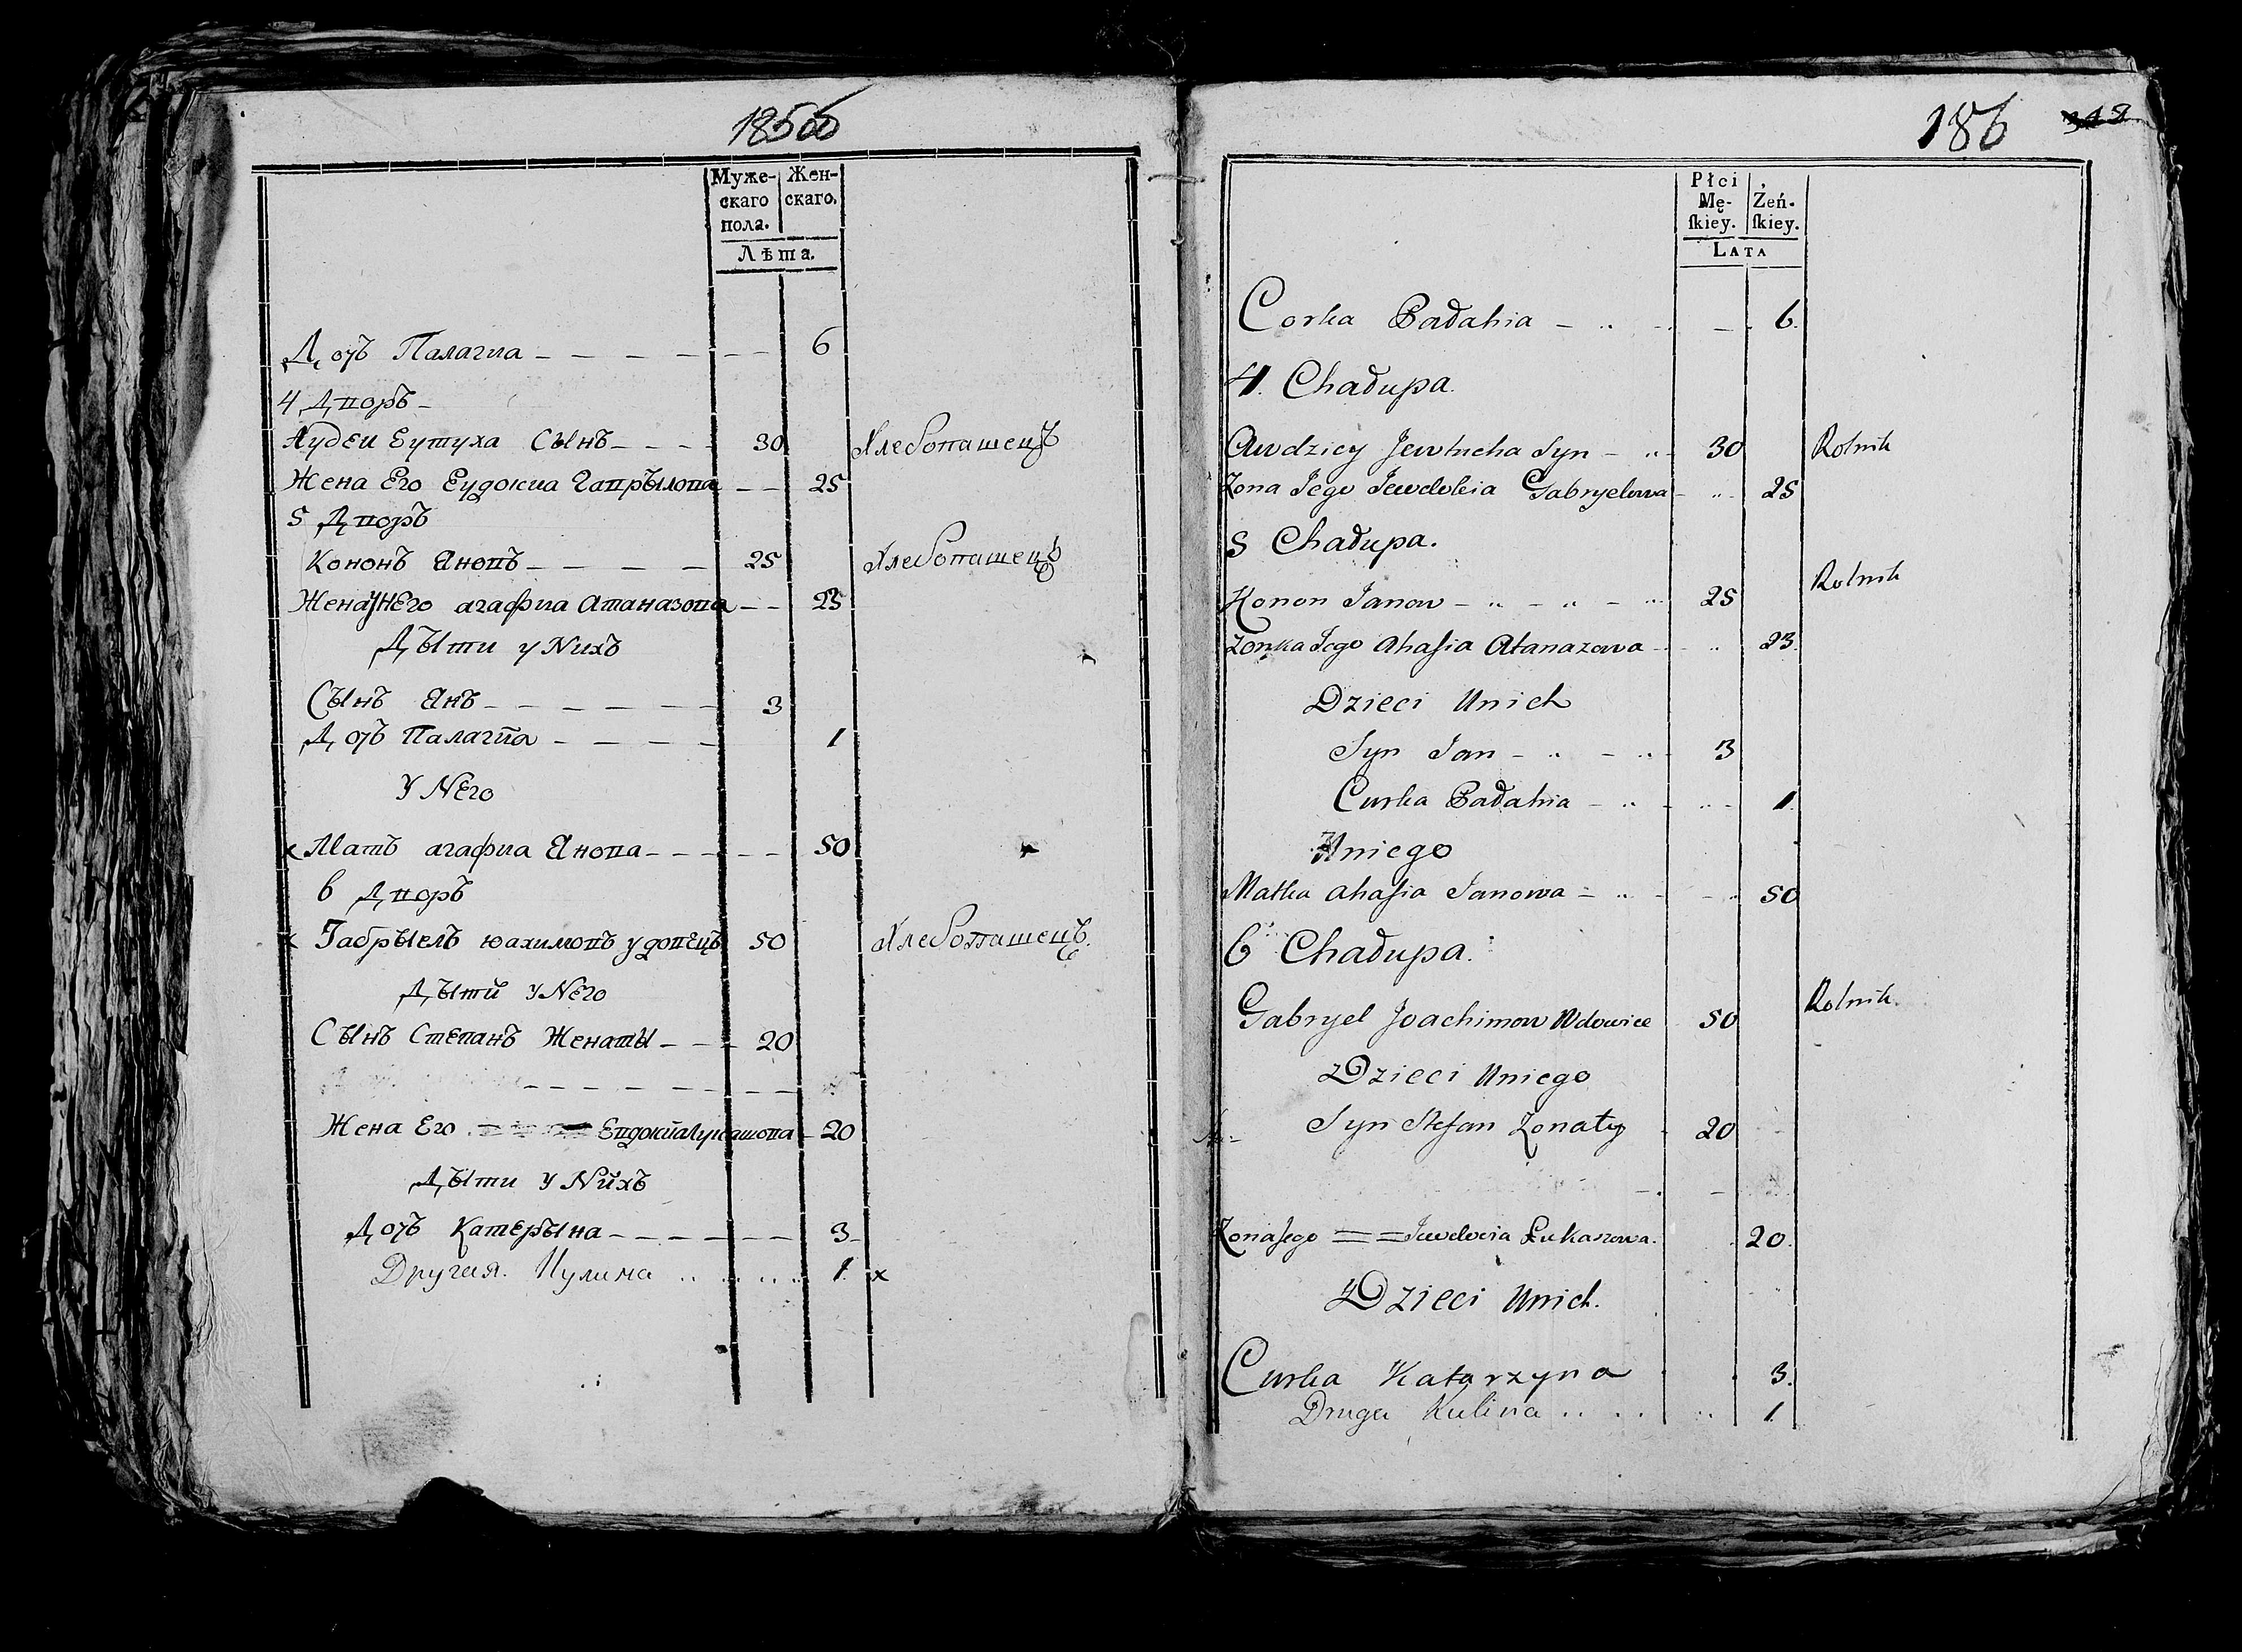 185об
Муже-
скаго
пола.
Жен-
скаго.
Лѣта.
Дочъ Палагиа - - - - - - 6
4 Дворъ -
Аудеи Еутуха Сынъ - - - - 30 Хлебопашецъ
Жена Его Еудокиа Гапрылопа - - 25
5 Дпоръ
Кононъ Янопъ - - - - - 25 Хлебопашецъ
Жена уНЕго агафиа Атаназопа - - 25
Дъıти у Nихъ
Сынъ Янъ - - - - - - 3
Дочъ Палагиа - - - - 1
У NЕго
х Мать агафиа Янопа - - - - - 50
6 Дпоръ
х Габрыелъ юахимопъ удопецъ 50 Хлебопашецъ
Дъıти у Nего
Сынъ Степанъ Женаты - - - 20
Жена Его Епдокиа Лукашопа - 20
Дъıти У Nихъ
Дочъ Катерына - - - - - - 3
Другая. Кулина .. .. .. .. 1 х
186
Płci
Mę-
ſkiey.
Żeń-
ſkiey.
LATA
Corka Pałahia - .. - - 6.
4. Chałupa.
Awdziey Jewtucha Syn - .. - 30 Rolnik
Zona Jego Jewdokia Gabryelowa - .. - 25
5 Chałupa.
Konon Janow - .. - .. - .. 25 Rolnik
Zonka Jego Ahafia Atanazowa - .. 23.
Dzieci Unich
Syn Jan - .. - .. - 3
Curka Pałahia - .. - .. - 1.
Uniego
Matka Ahafia Janowa - .. - - .. 50
6 Chałupa.
Gabryel Joachimow Wdowiec 50 Rolnik.
Dzieci Uniego
Syn Stefan Zonaty - 20
Zona Jego == == Jewdocia Łukaszowa. 20.
Dzieci Unich.
Curka Katarzyna 3.
Druga Kulina .. .. .. 1.